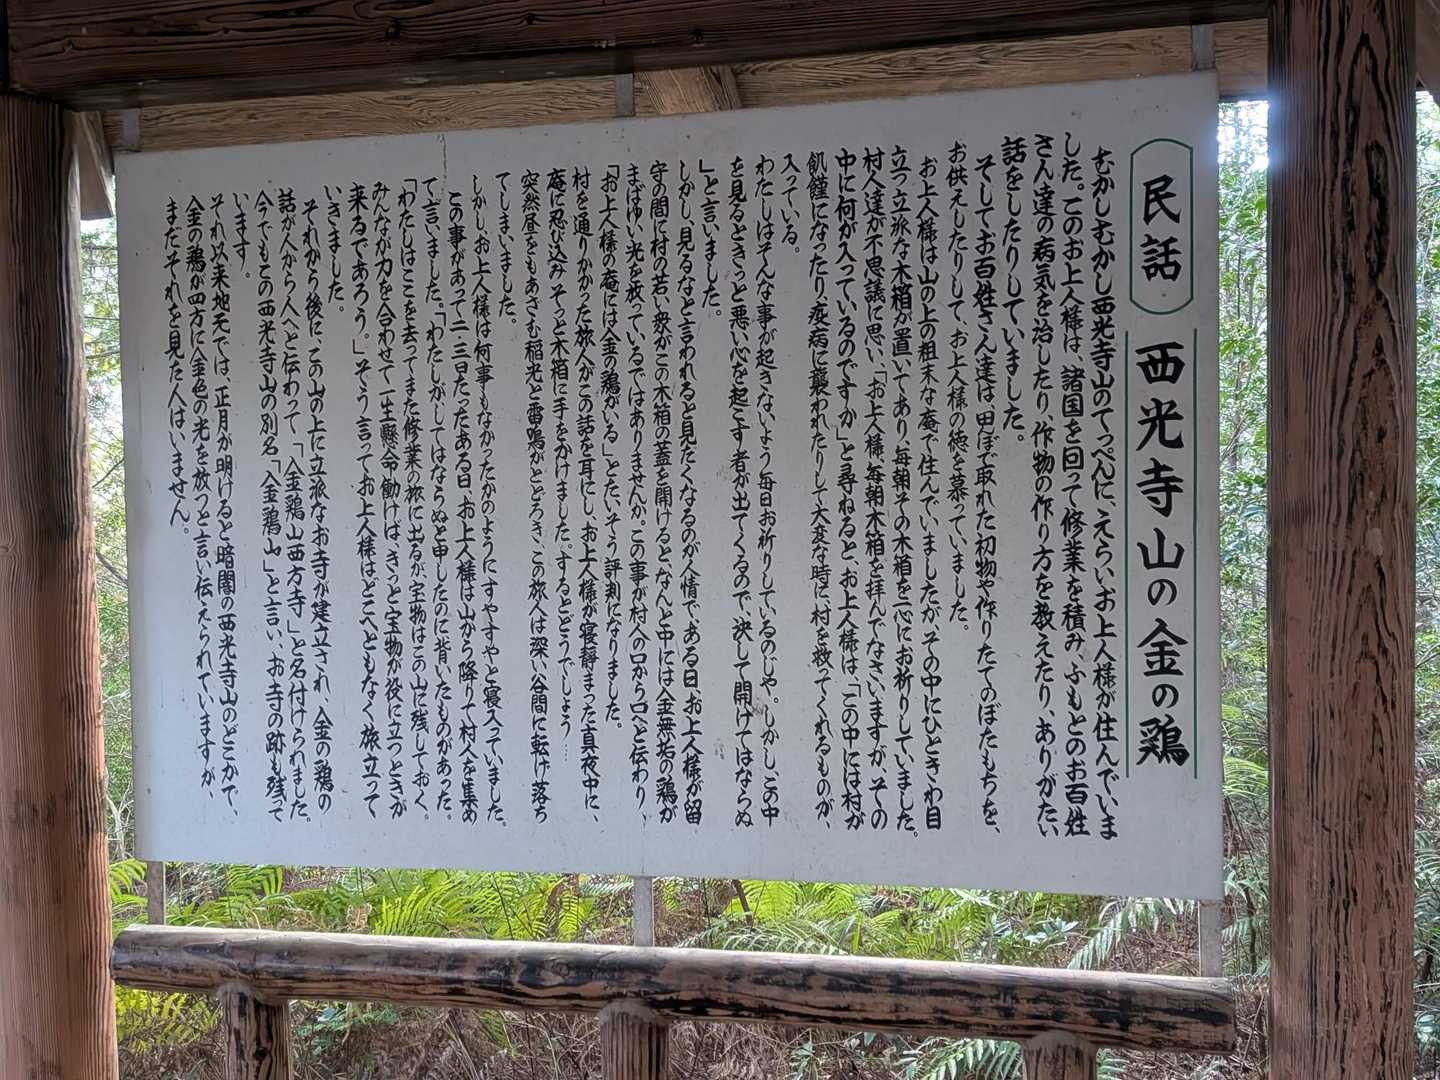 民話
西光寺山の金の鶏
むかしむかし西光寺山のてっぺんに、えらいお上人様が住んでいま
した。このお上人様は、諸国を回って修業を積み、ふもとのお百姓
さん達の病気を治したり、作物の作り方を教えたり、ありがたい
話をしたりしていました。
そしてお百姓さん達は、田ぼで取れた初物や作りたてのぼたもちを、
お供えしたりして、お上人様の徳を慕っていました。
お上人様は山の上の粗末な庵で住んでいましたが、その中にひときわ目
立つ立派な木箱が置いてあり、毎朝その木箱を一心にお祈りしていました。
村人達が不思議に思い、「お上人様、毎朝木箱を拝んでなさいますが、その
中に何が入っているのですか」と尋ねると、お上人様は、「この中には村が
飢饉になったり、疫病に襲われたりして大変な時に、村を救ってくれるものが、
入っている。
わたしはそんな事が起きないよう毎日お祈りしているのじゃ。しかしこの中
を見るときっと悪い心を起こす者が出てくるので、決して開けてはならぬ
」と言いました。
しかし、見るなと言われると見たくなるのが人情で、ある日、お上人様が留
守の間に村の若い衆がこの木箱の蓋を開けると、なんと中には金無垢の鶏が
まばゆい光を放っているではありませんか。この事が村人の口から口へと伝わり、
「お上人様の庵には金の鶏がいる」とたいそう評判になりました。
村を通りかかった旅人がこの話を耳にし、お上人様が寝静まった真夜中に、
庵に忍び込み、そっと木箱に手をかけました。するとどうでしょう…
突然昼をもあざむ稲光と雷鳴がとどろき、この旅人は深い谷間に転げ落ち
てしまいました。
しかし、お上人様は何事もなかったかのようにすやすやと寝入っていました。
この事があって二・三日たったある日、お上人様は山から降りて村人を集め
て言いました。「わたしがしてはならぬと申したのに背いたものがあった。
「わたしはここを去ってまた修業の旅に出るが宝物はこの山に残しておく。
みんなが力を合わせて一生懸命働けば、きっと宝物が役に立つときが
来るであろう。」そう言ってお上人様はどこへともなく旅立って
いきました。
それから後に、この山の上に立派なお寺が建立され、金の鶏の
話が人から人へと伝わって、「金鶏山西方寺」と名付けられました。
今でもこの西光寺山の別名「金鶏山」と言い、お寺の跡も残って
います。
それ以来地元では、正月が明けると暗闇の西光寺山のどこかで、
金の鶏が四方に金色の光を放つと言い伝えられていますが、
まだそれを見た人はいません。